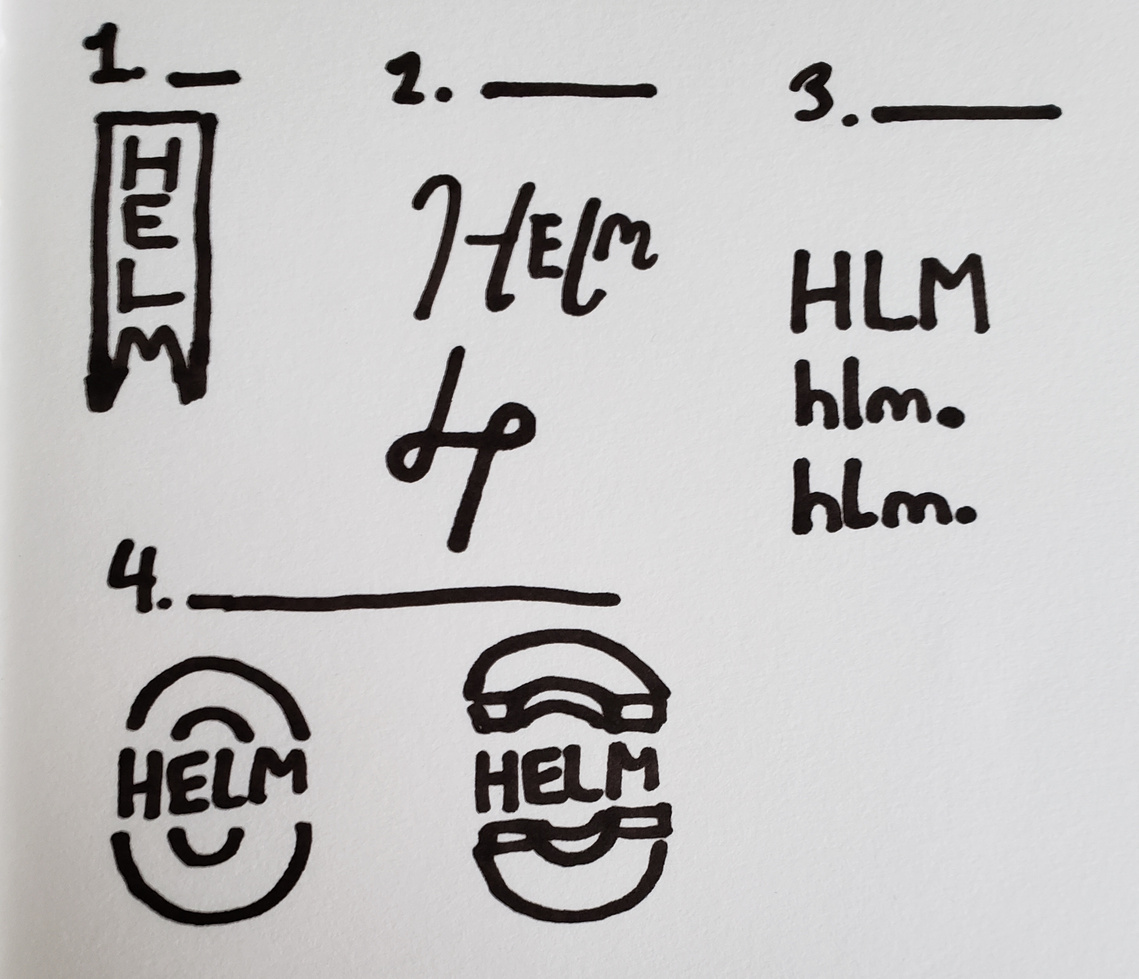 1. _
H
E
L
M
2. _
HELM
3. _
HLM
hlm.
hlm.
4. _
HELM
HELM